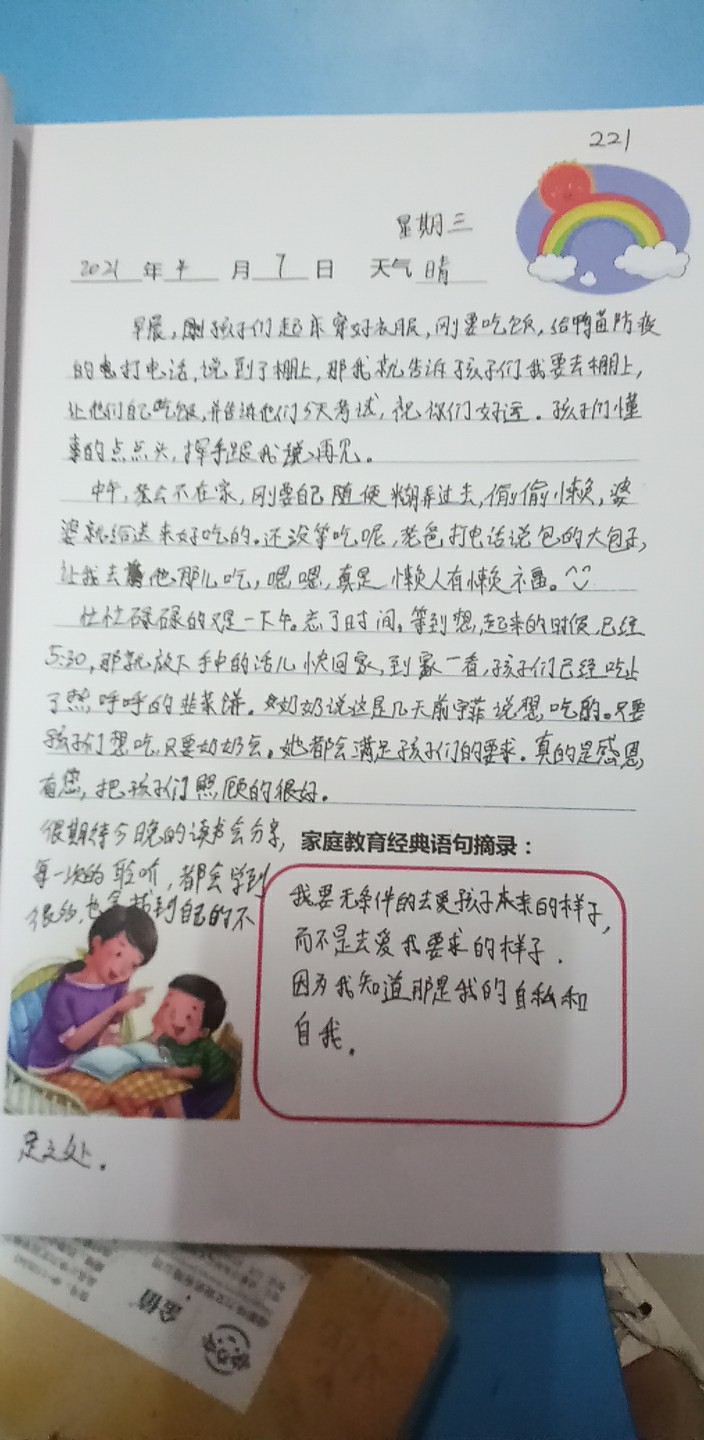 221
星期三
2021年4月7日 天气晴
早晨，刚孩子们起来穿好衣服，刚要吃饭，给鸭苗防疫
的打电话，说到了棚上，那我就告诉孩子们我要去棚上，
让他们自己吃饭，并告诉他们今天考试，祝你们好运。孩子们懂
事的点点头，挥手跟我说再见。
中午，老公不在家，刚要自己随便糊弄过去，偷偷懒，婆
婆就给送来好吃的。还没等吃呢，老爸打电话说包的大包子，
让我去他那儿吃，嗯嗯，真是懒人有懒福。
忙忙碌碌的又是一下午。忘了时间，等到想起来的时候，已经
5:30，那就放下手中的活儿快回家，到家一看，孩子们已经吃上
了热呼呼的韭菜饼。奶奶说这是几天前宇菲说想吃的。只要
孩子们想吃，只要奶奶会。她都会满足孩子们的要求。真的是感恩
有您，把孩子们照顾的很好。
很期待今晚的读书会分享，
每一次的聆听，都会学到
很多，也会找到自己的不
足之处。
家庭教育经典语句摘录：
我要无条件的去爱孩子本来的样子，
而不是去爱我要求的样子．
因为我知道那是我的自私和
自我．